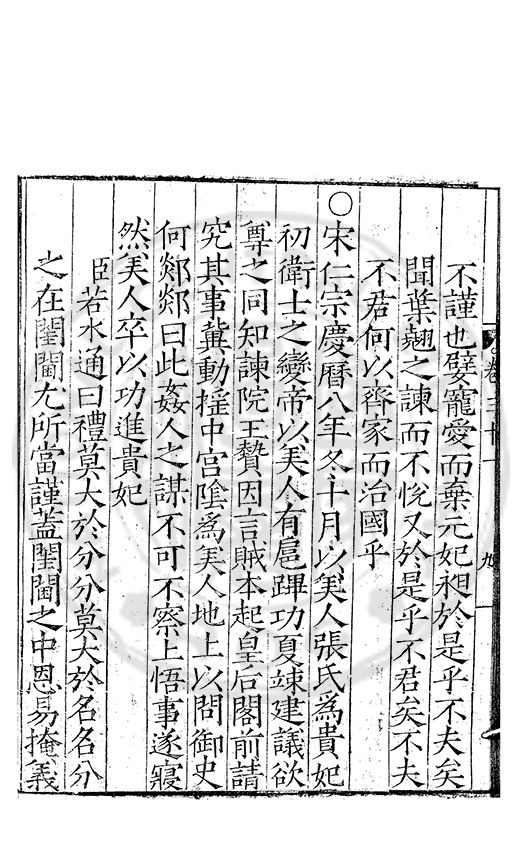 卷三十一
九
不謹也嬖寵愛而棄元妃昶於是乎不夫矣
聞葉翹之諫而不悅又於是乎不君矣不夫
不君何以齊家而治國乎
○宋仁宗慶曆八年冬十月以美人張氏為貴妃
初衛士之變帝以美人有扈蹕功夏竦建議欲
尊之同知諫院王贄因言賊本起皇后閣前請
究其事冀動搖中宮陰為美人地上以問御史
何郯郯曰此姦人之謀不可不察上悟事遂寢
然美人卒以功進貴妃
臣若水通曰禮莫大於分分莫大於名名分
之在閨閫尤所當謹蓋閨閫之中恩易掩義